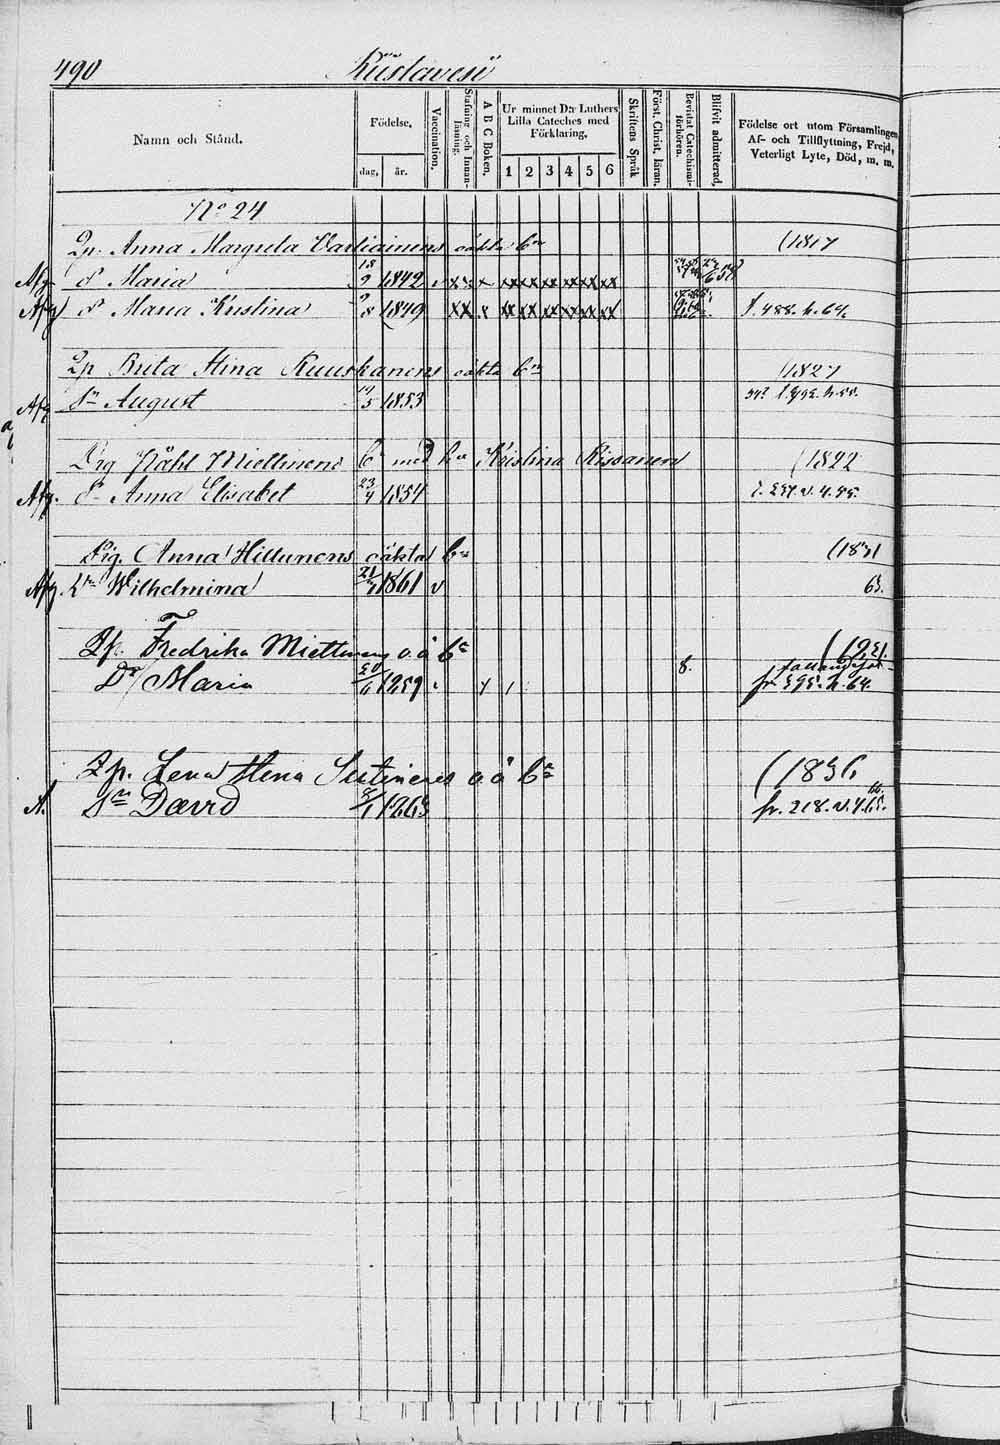 490 Kuslavesi
Namn och Stånd.
Födelse,
dag, år.
Vaccination,
Stafning och Innanläsning.
A B C Boken,
Ur minnet D:r Luthers Lilla Cateches med Förklaring,
1 2 3 4 5 6
Skriftens Språk
Först. Christ. läran,
Bevistat Catechismiförhören.
Blifvit admitterad,
Födelse ort utom Församlingen, Af- och Tillflyttning, Frejd, Veterligt Lyte, Död, m. m.
No 24
Qp. Anna Margreta Vartiainens oäkta bn (1817
Afg d Maria 18/9 1842
Afg d Maria Kristina 9/8 1849 f. 488. h. 64.
Qp Brita Stina Ruuskanens oäkta bn (1827
Afg Sn August 14/5 1853
Drg Påhl Miettinens bn med h:u Kristina Rissanen (1822
Afg. d Anna Elisabet 23/4 1854
Pig. Anna Hillunens oäkta bn (1831
Afg. Dr Wilhelmina 21/7 1861 v 63.
Qp. Fredrika Miettinens o.ä bn
Dr Maria 20/6 1859 8. fr. 595. h. 64.
Qp. Lena Stena Sutinens o.ä bn (1836
A. Sn David 8/1 1863 fr. 218. v. 4. 65.